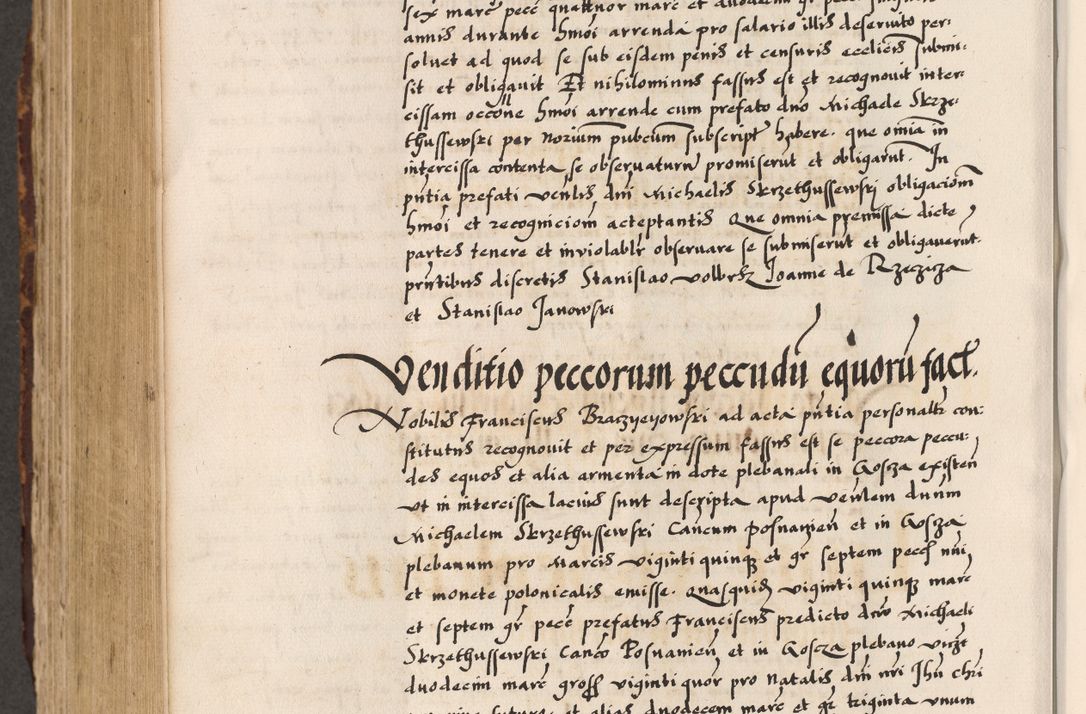 sex marc pecc quattuor marc et duodecim gr pecc
annis durante hmoi arrenda pro salario illis deservito per-
solvet ad quod se sub eisdem penis et censuris ecclicis submi-
sit et obligavit Et nihilominus fassus est et recognovit inter-
cissam occone hmoi arrende cum prefato dno Michaele Skrze-
thussewski per Norium pubcum subscript habere. que omia in
intercissa contenta se observaturum promiserut et obligarut. In
pntia prefati venlis dni Michaelis Skrzethussewski obligaciom
hmoi et recogniciom acceptantis Que omnia premissa dicte
partes tenere et inviolablr observare se submiserut et obligaverut
pntibus discretis Stanislao Joanne de Rzeczicza
et Stanislao Janowski
Venditio peccorum peccudu equoru fact.
Nobilis Franciscus Braczyeyowski ad acta pntia personalr con-
stitutus recognovit et per expressum fassus est se peccora peccu-
des equos et alia armenta in dote plebanali in Goscza existen
ut in intercissa lacius sunt descripta apud venlem dnum
Michaelem Skrzethussewski Cancum Posnanien et in Goscza
plebanum pro Marcis viginti quinque et gr septem pecc nui
et monete polonicalis emisse. Quasquid viginti quinque marc
et septem gr pecc prefatus Franciscus predicto dno Michaeli
Skrzethussewski Canco Posnanien et in Goscza plebano vicz
duodecim marc gross viginti quor pro natalis dni nri Jhu chri
et alias duodecem marc et gr triginta unum